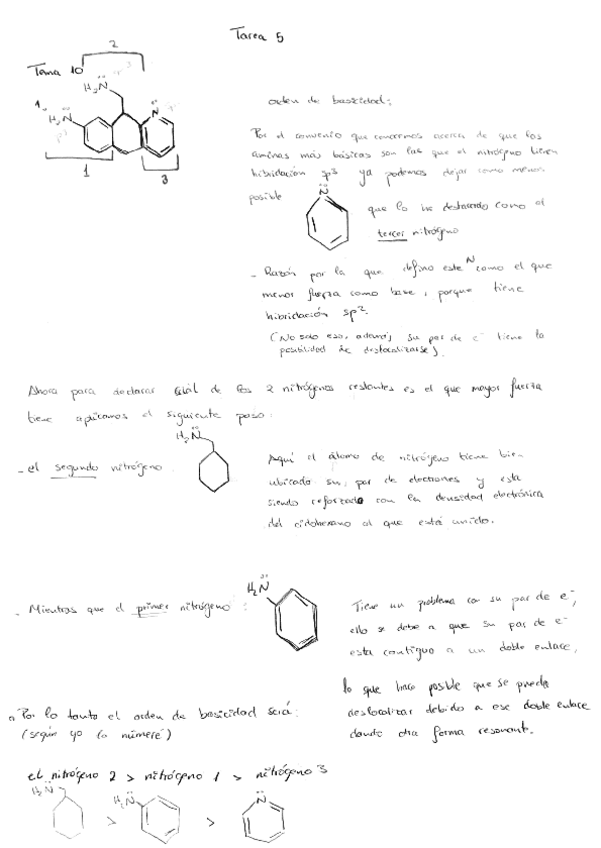 Tarea 5
Tema 10
2
H₂N
1.
H₂N
N
1
3
orden de basicidad:
Por el convenio que conocemos acerca de que las
aminas más básicas son las que el nitrógeno tienen
hibridación sp3 ya podemos dejar como menos
posible
N
que lo he destacado como el
tercer nitrógeno
- Razón por la que defino este N como el que
menor fuerza como base, porque tiene
hibridación sp².
(No solo eso, además, su par de e⁻ tiene la
posibilidad de deslocalizarse).
Ahora para declarar cuál de los 2 nitrógenos restantes es el que mayor fuerza
tiene aplicamos el siguiente paso:
H₂N
- el segundo nitrógeno
Aquí el átomo de nitrógeno tiene bien
ubicado su par de electrones y esta
siendo reforzado con la densidad electrónica
del ciclohexano al que está unido.
- Mientras que el primer nitrógeno :
H₂N
Tiene un problema con su par de e⁻,
ello se debe a que su par de e⁻
esta contiguo a un doble enlace,
lo que hace posible que se pueda
deslocalizar debido a ese doble enlace
dando otra forma resonante.
Por lo tanto el orden de basicidad será:
(según yo lo numeré)
el nitrógeno 2 > nitrógeno 1 > nitrógeno 3
H₂N > H₂N > N